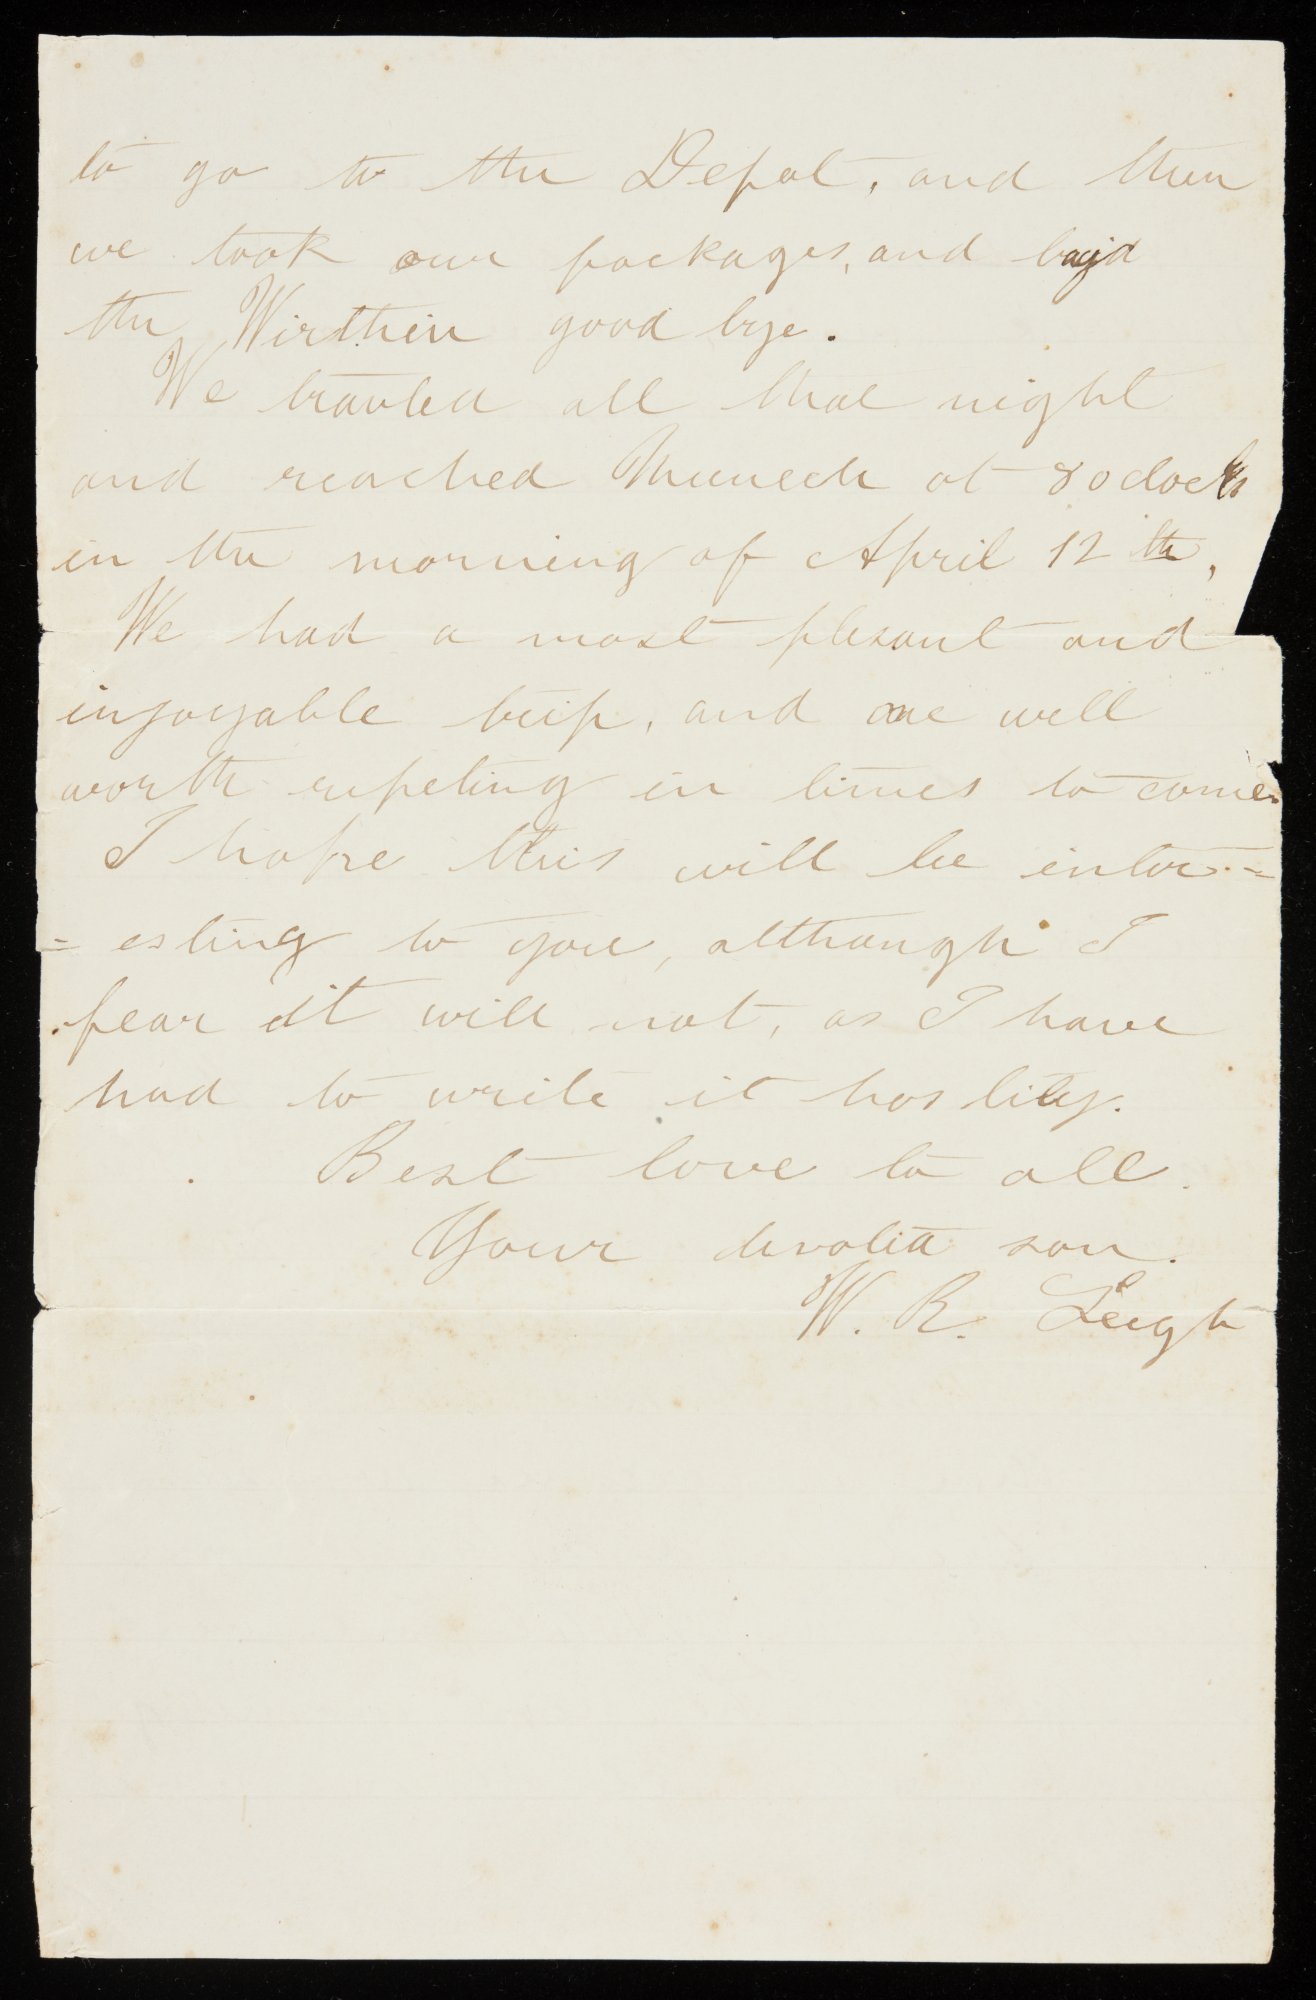 to go to the Depot, and then
we took our packages, and bayd
the Wirthin good bye.
We travled all that night
and reached Munech at 8 oclock
in the morning of April 12th,
We had a most plesant and
injoyable trip, and one well
worth repeting in times to come.
I hope this will be inter-=
= esting to you, although I
fear it will not, as I have
had to write it hastily.
Best love to all.
Your devoted son.
W. R. Leigh